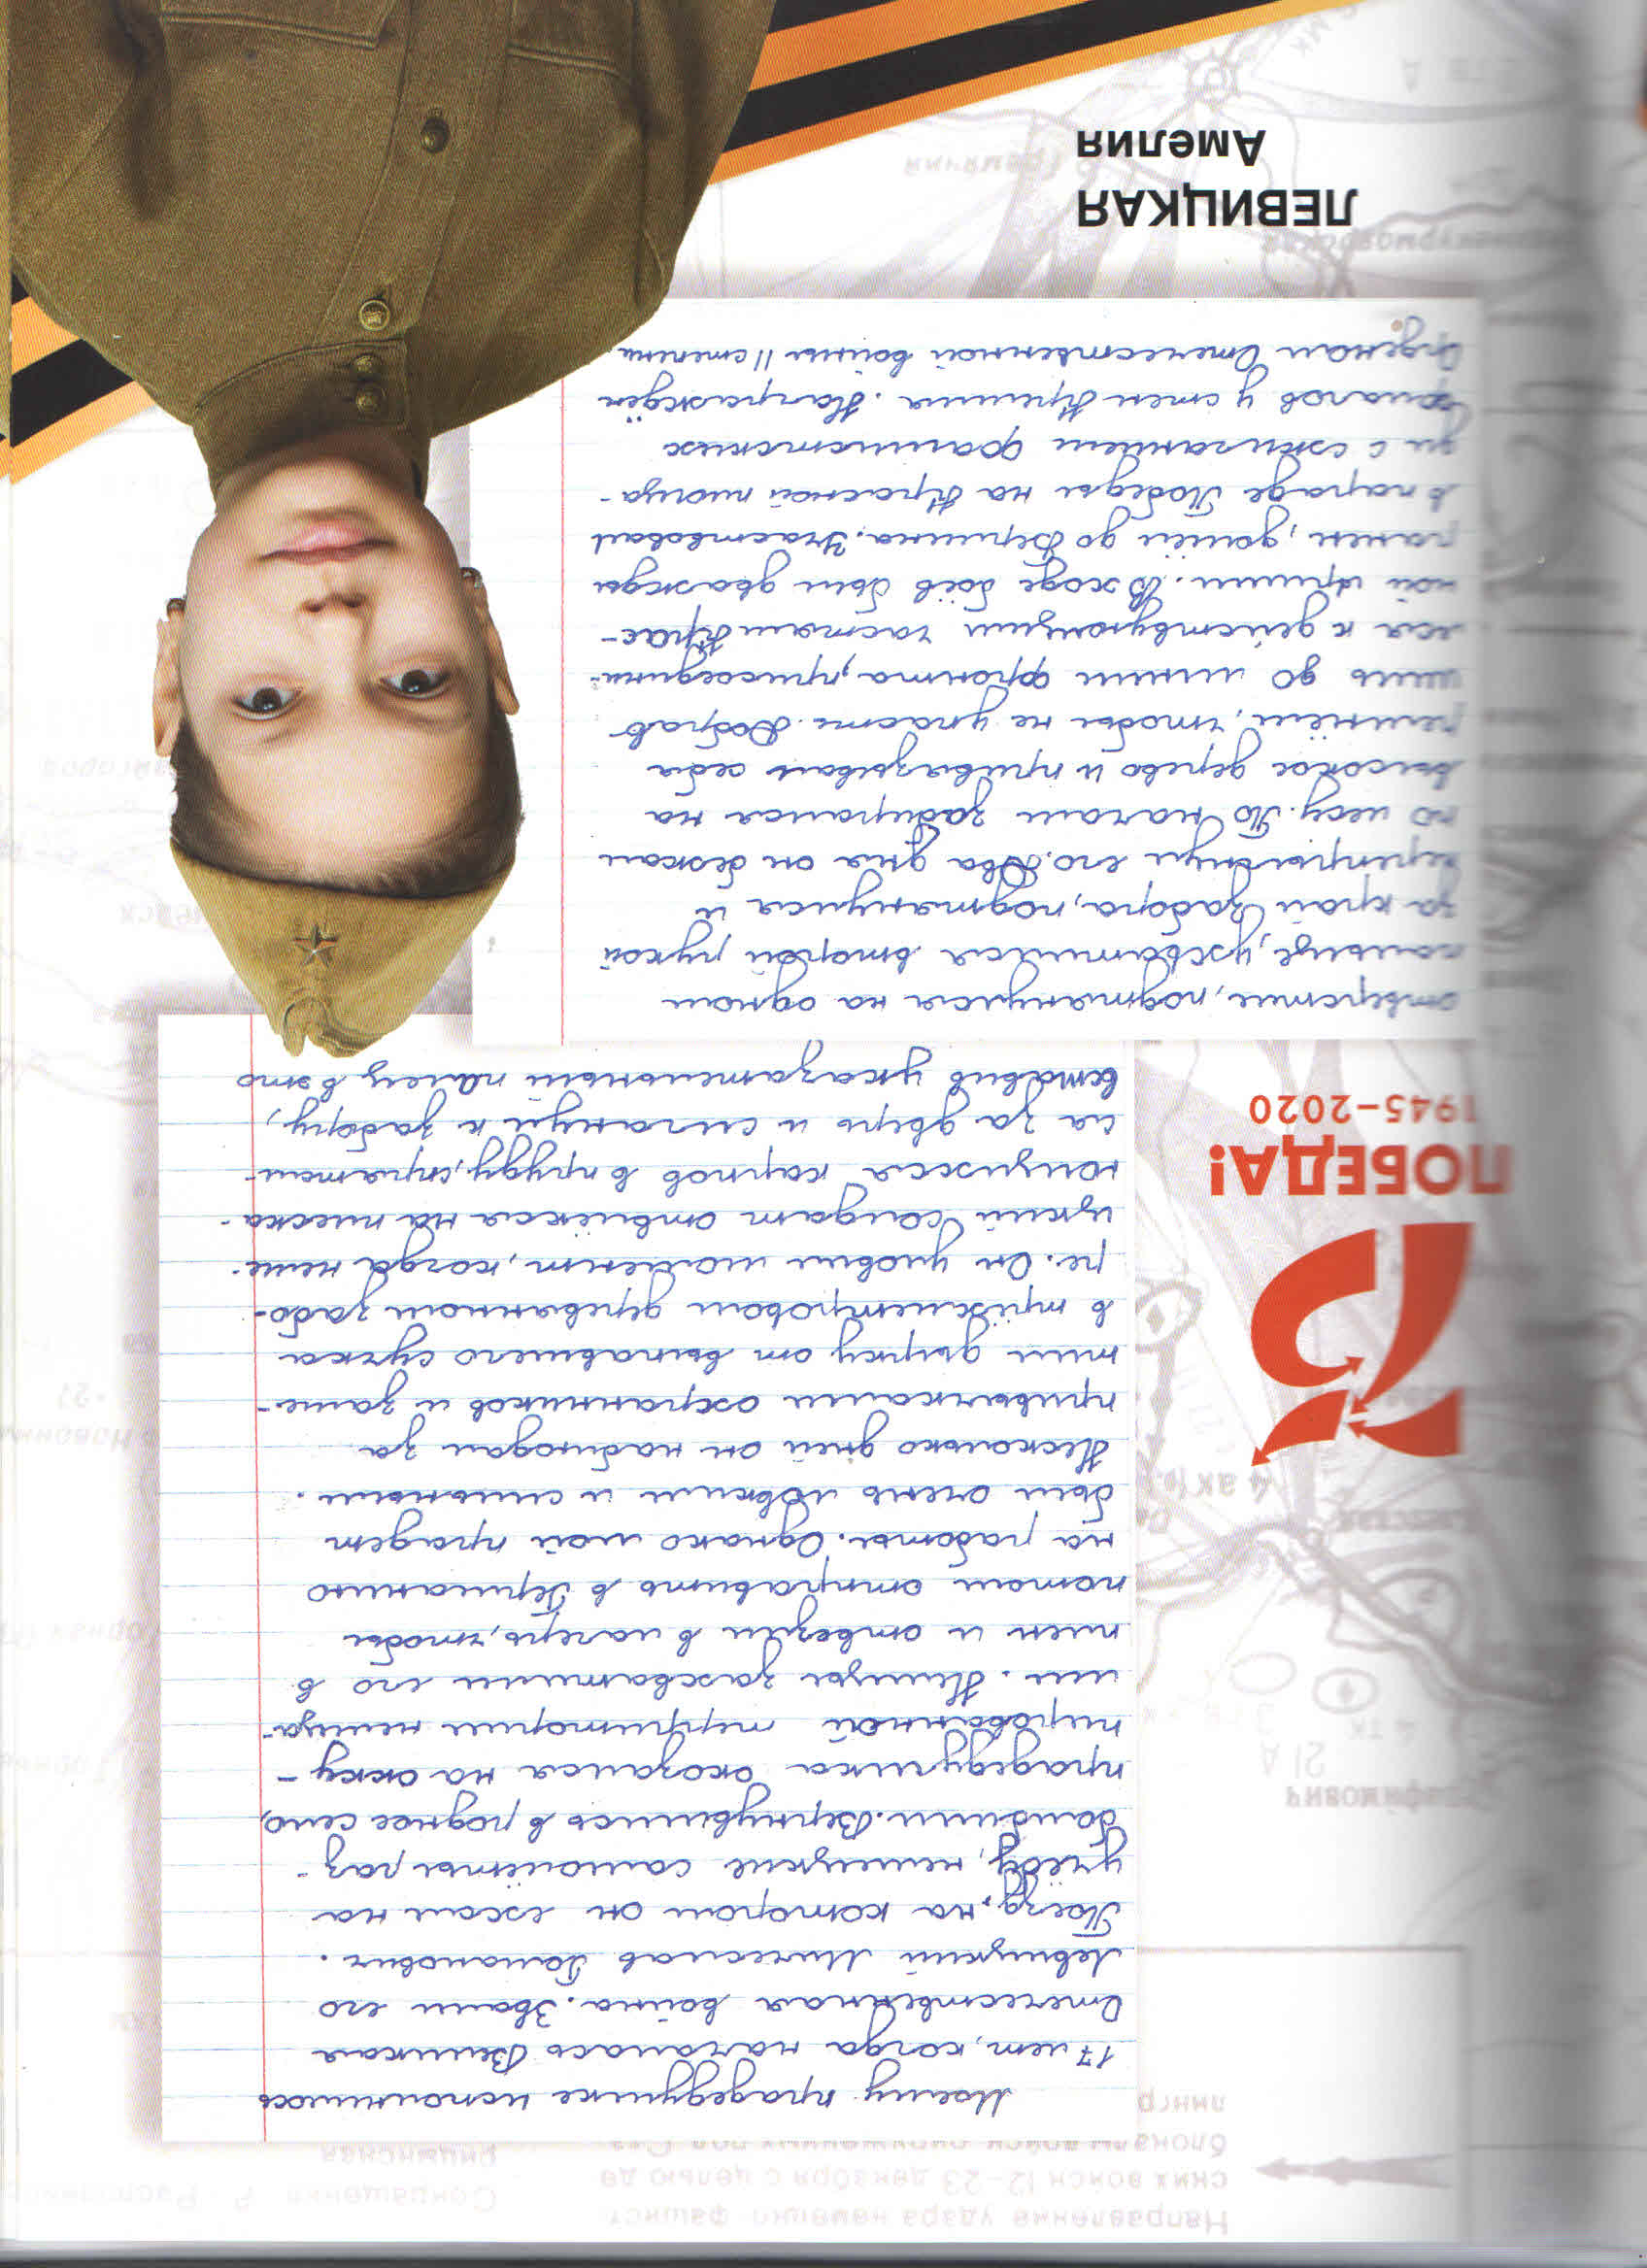 Направление удара немецко-фашист-
ских войск 12–23 декабря с целью де
блокады войск, окруженных под Ста-
лингр
Сокращения Р
рицынская
Моему прадедушке исполнилось
17 лет, когда началась Великая
Отечественная война. Звали его
Левицкий Мичеслав Романович.
Поезд, на котором он ехал на
учёбу, немецкие самолёты раз-
бомбили. Вернувшись в родное село,
прадедушка оказался на окку-
пированной территории немца-
ми. Немцы захватили его в
плен и отвезли в лагерь, чтобы
потом отправить в Германию
на работы. Однако мой прадет
был очень ловким и сильным.
Несколько дней он наблюдал за
привычками охранников и заме-
тил дырку от выпавшего сучка
в трёхметровом деревянном забо-
ре. Он уловил момент, когда неме-
цкий солдат отвлёкся на плеска-
ющихся карпов в пруду, спрятал-
ся за дверь и сиганул к забору,
вставив указательный палец в это
отверстие, подтянулся на одном
пальце, ухватился второй рукой
за край забора, подтянулся и
перепрыгнул его. Два дня он бежал
по лесу. По начам забирался на
высокое дерево и привязывал себя
ремнём, чтобы не упасть. Добрав
шись до линии фронта, присоедини-
лся к действующим частям Крас-
ной Армии. В ходе боёв был дважды
ранен, дошёл до Берлина. Участвовал
в параде Победы на Красной площа-
ди с сжиганием фашистских
флагов у стен Кремля. Награждён
Орденом Отечественной войны II степени.
21 А
4 тк
4 ак
75
ПОБЕДА!
1945–2020
ЛЕВИЦКАЯ
Амелия
Гремячий